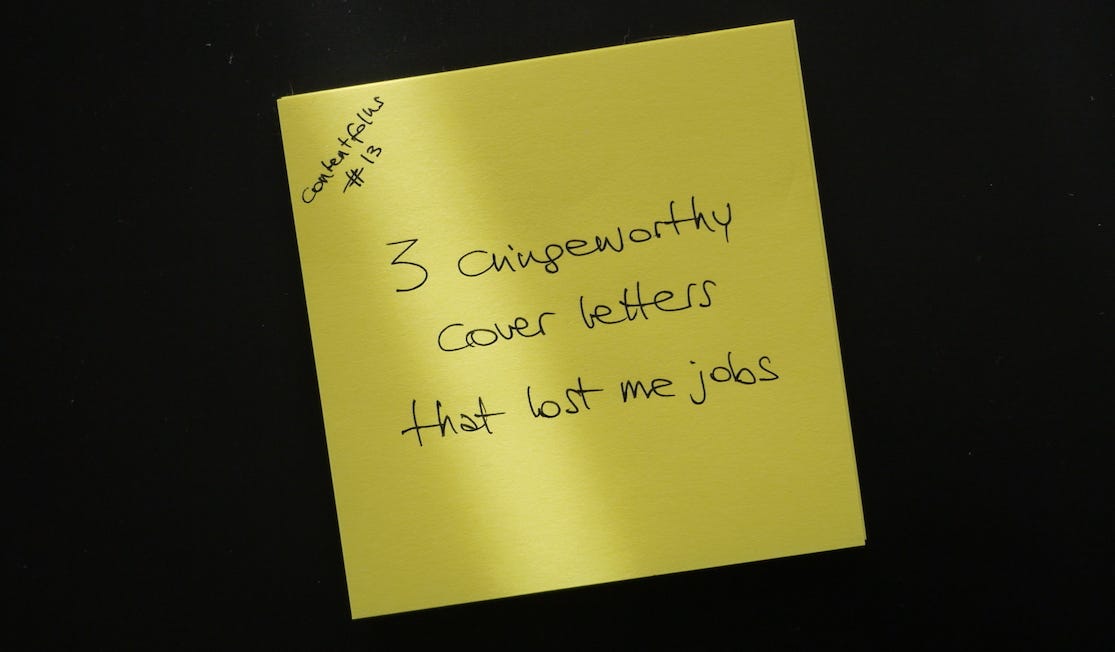 contentfolks
#13
3 cringeworthy
cover letters
that lost me jobs